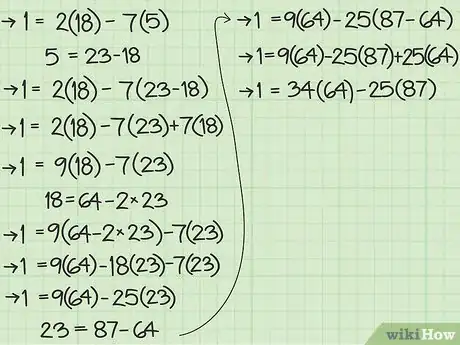 →1 = 2(18) - 7(5)
5 = 23-18
→1 = 2(18) - 7(23-18)
→1 = 2(18) - 7(23)+7(18)
→1 = 9(18) - 7(23)
18=64-2×23
→1 = 9(64-2×23)-7(23)
→1 = 9(64)-18(23)-7(23)
→1 = 9(64)-25(23)
23 = 87-64
→1 = 9(64)-25(87-64)
→1=9(64)-25(87)+25(64)
→1 = 34(64)-25(87)
wikiHow